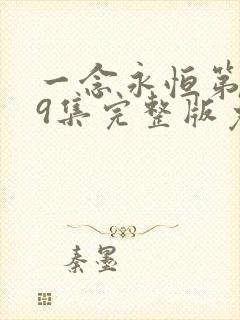 一念永恒第
9集完整版
秦墨